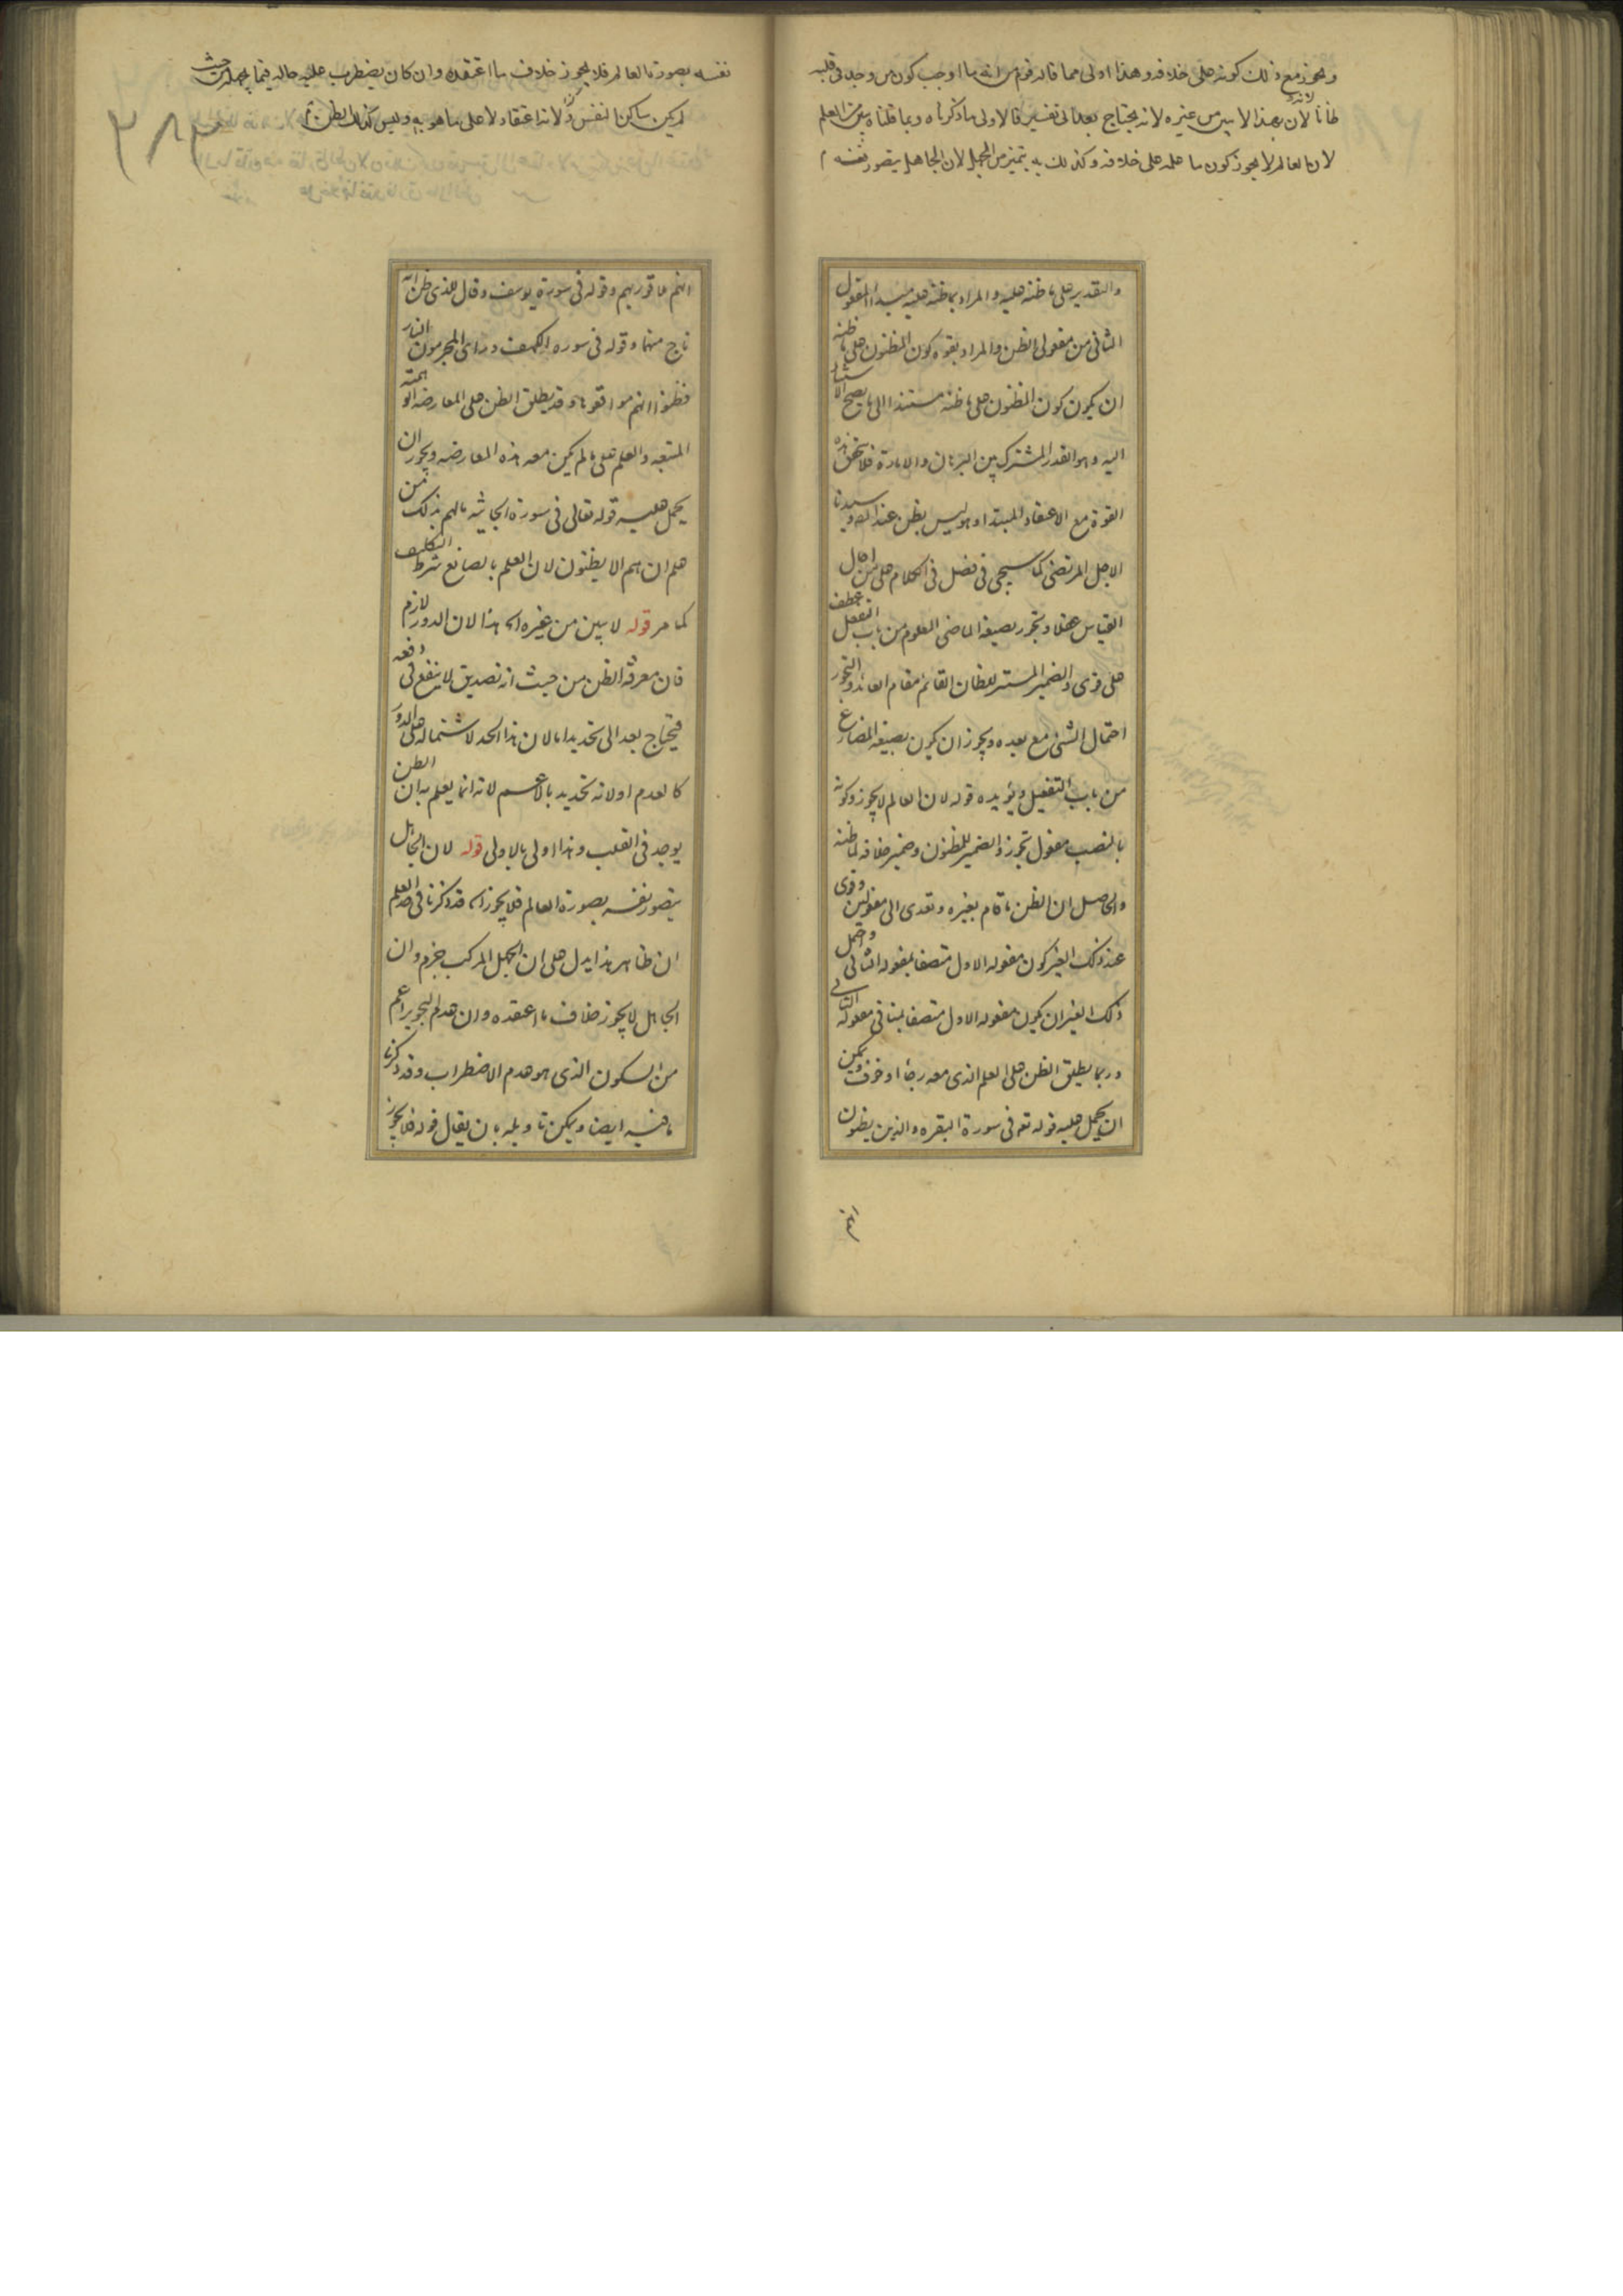 ويجوز مع ذلك كونه على خلافه وهذا اولى مما قاله قوم من انه ما اوجب كون من وجد في قلبه
ظانا لان بهذا لا يبين من غيره لانه يحتاج بعد الى تفسير فالاولى ما ذكرناه وبما قلناه يبين من العلم
لان العالم لا يجوز كون ما علمه على خلافه وكذلك به يتميز من الجهل لان الجاهل يتصور نفسه
والتقدير على ما ظنه عليه والمراد بما ظنه عليه مبدا المفعول
الثاني من مفعولي الظن والمراد بقوة كون المظنون على ما ظنه
ان يكون كون المظنون على ما ظنه مستندا الى ما يصح الاستناد
اليه وهو القدر المشترك بين البرهان والامارة فلا تتحقق هذه
القوة مع الاعتقاد المبتدا وهو ليس بظن عند سيدنا
الاجل المرتضى كما سيجي في فصل في الكلام على من احال
القياس عقلا وتجوز بصيغة الماضي المعلوم من باب التفعل عطف
على قوى والضمير المستتر للظان القائم مقام العائد والتجوز
احتمال الشئ مع بعده ويجوز ان يكون بصيغة المضارع
من باب التفعيل ويؤيده قوله لان العالم لا يجوز وكونه
بالنصب مفعول تجوز والضمير للمظنون وضمير خلافه لما ظنه
والحاصل ان الظن ما قام بغيره وتعدى الى مفعولين وقوى
عند ذلك الغير كون مفعوله الاول متصفا بمفعوله الثاني واحتمل
ذلك الغير ان يكون مفعوله الاول متصفا بمنافي مفعوله الثاني
وربما يطلق الظن على العلم الذي معه رجاء او خوف ويمكن
ان يحمل عليه قوله تعه في سورة البقره والذين يظنون
انهم
نفسه بصورة العالم فلا يجوز خلاف ما اعتقده وان كان يضطرب عليه حاله فيما يجهله من حيث
لم يكن ساكن النفس ولانه اعتقاد لا على ما هو به وليس كذلك الظن
٢٨٣
انهم ملاقو ربهم وقوله في سورة يوسف وقال للذي ظن انه
ناج منهما وقوله في سوره الكهف وراى المجرمون النار
فظنوا انهم مواقعوها وقد يطلق الظن على المعارضه الوهمية
المتبعه والعلم على ما لم يكن معه هذه المعارضه ويجوز ان
يحمل عليه قوله تعالى في سورة الجاثيه مالهم بذلك من
علم ان هم الا يظنون لان العلم بالصانع شرط التكليف
كما مر قوله لا يبين من غيره اه هذا لان الدور لازم
فان معرفة الظن من حيث انه تصديق لا ينفع في دفعه
فيحتاج بعد الى تحديدها لان هذا الحد لاشتماله على الدور
كالعدم او لانه تحديد بالاعم لانه انما يعلم به ان الظن
يوجد في القلب وهذا اولى بالاولى قوله لان الجاهل
يتصور نفسه بصورة العالم فلا يجوز اه قد ذكرنا في حد العلم
ان ظاهر هذا يدل على ان الجهل المركب جزم وان
الجاهل لا يجوز خلاف ما اعتقده وان عدم التجويز اعم
من السكون الذي هو عدم الاضطراب وقد ذكرنا
ما فيه ايضا ويمكن تاويله بان يقال قوله فلا يجوز